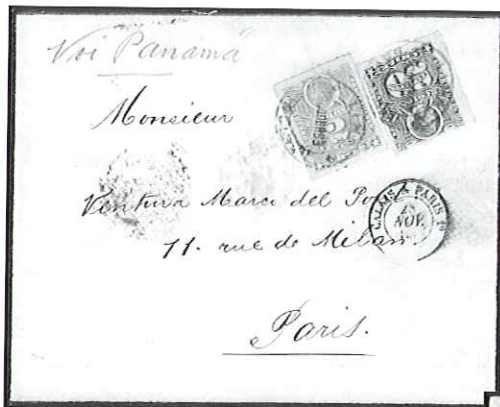 Voi Panama
Monsieur
Ventura Marco del Pont
11. rue de Milan.
CALAIS A PARIS
NOV.
Paris.